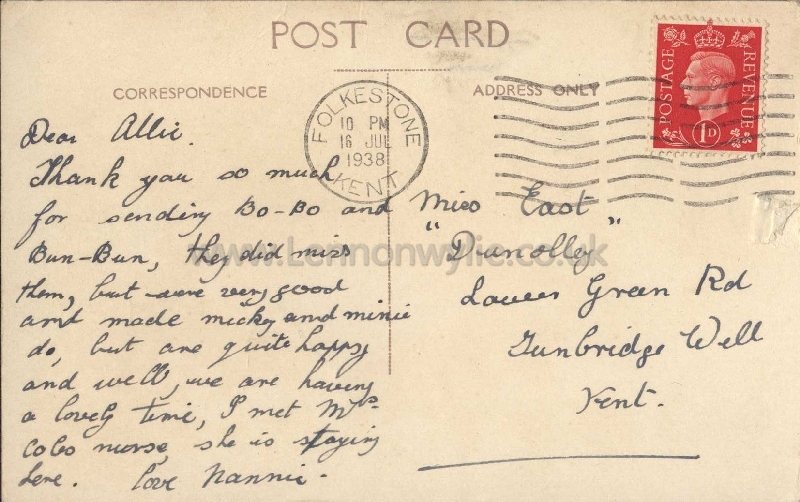 POST CARD
CORRESPONDENCE
ADDRESS ONLY
FOLKESTONE
10 PM
16 JUL
1938
KENT
POSTAGE
REVENUE
1D
Dear Allie.
Thank you so much
for sending Bo-Bo and
Bun-Bun, they did miss
them, but were very good
and made micky and minie
do, but are quite happy
and well, we are having
a lovely time, I met Mrs
Cobs nurse, she is staying
here. love Nannie.
Miss East
"Dunolley"
Lower Green Rd
Tunbridge Well
Kent.
www.Lennonwylie.co.uk